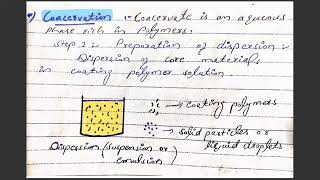 Coacervation :- Coacervate is an aqueous
phase rich in Polymers.
Step 1 :- Preparation of dispersion :-
Dispersion of core materials
in coating polymer solution.
→ coating polymers
→ solid particles or
liquid droplets
Dispersion (suspension or
emulsion)